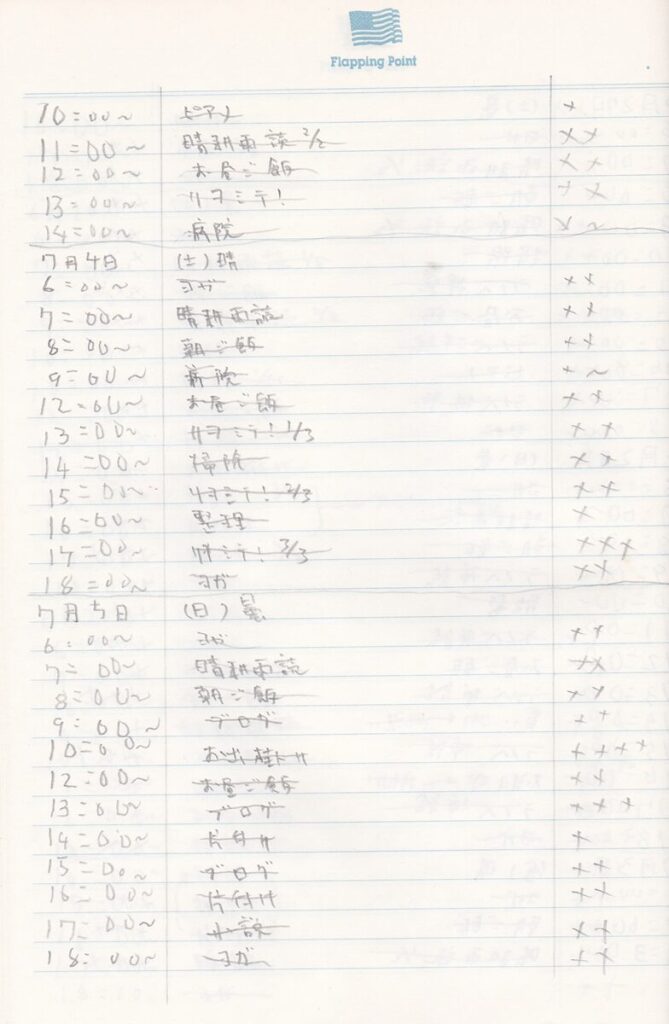 Flapping Point
10:00~ ピアノ ×
11:00~ 晴耕雨読 2/2 ××
12:00~ お昼ご飯 ××
13:00~ サヨミテ! ××
14:00~ 病院 ×~
7月4日 (土)晴
6:00~ ヨガ ××
7:00~ 晴耕雨読 ××
8:00~ 朝ご飯 ××
9:00~ 病院 ×~
12:00~ お昼ご飯 ××
13:00~ サヨミテ! 1/3 ××
14:00~ 掃除 ××
15:00~ サヨミテ! 2/3 ××
16:00~ 整理 ×
17:00~ サヨミテ! 3/3 ×××
18:00~ ヨガ ××
7月5日 (日)曇
6:00~ ヨガ ××
7:00~ 晴耕雨読 ××
8:00~ 朝ご飯 ××
9:00~ ブログ ××
10:00~ お出掛け ××××
12:00~ お昼ご飯 ××
13:00~ ブログ ×××
14:00~ 片付け ×
15:00~ ブログ ××
16:00~ 片付け ××
17:00~ 小説 ××
18:00~ ヨガ ××